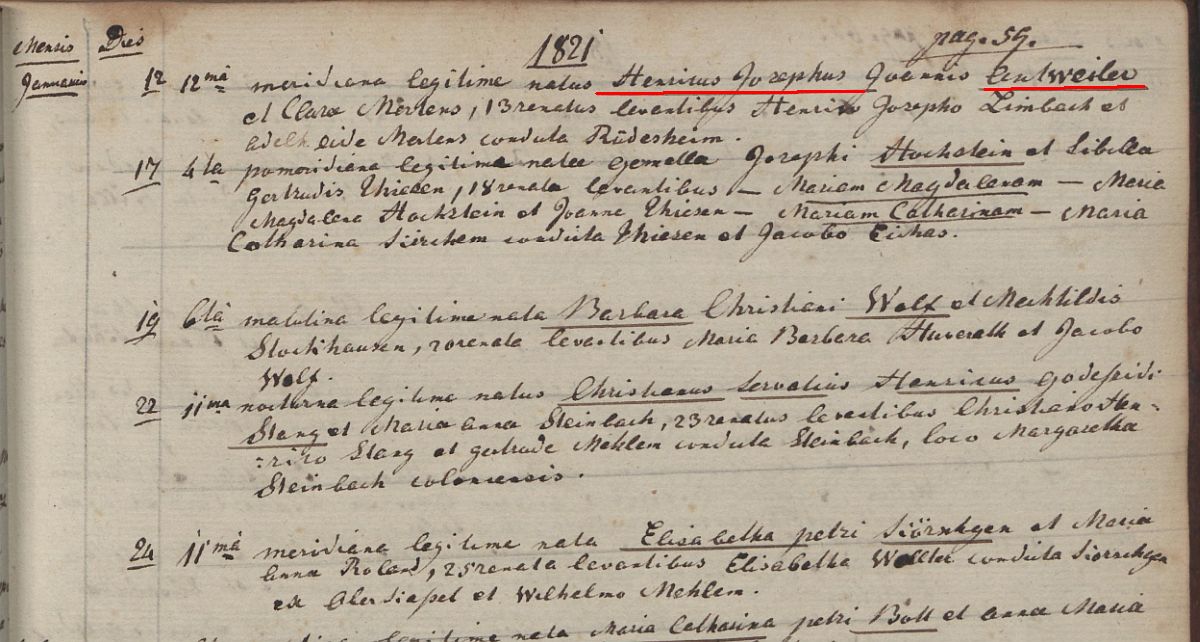 Mensis Dies 1821 pag. 59.
Januarius 12 12mâ meridiana legitime natus Henricus Josephus Joannis Lentweiler
et Clara Mertens, 13 renatus levantibus Henrico Josepho Limbach et
adelheide Mertens conducta Rüdesheim.
17 4ta pomeridiana legitima natae gemella Josephi Hochstein et Sibilla
Gertrudis Thiesen, 18 renata levantibus — Mariam Magdalenam — Maria
Magdalena Hochstein et Joanne Thiesen — Mariam Catharinam — Maria
Catharina conducta Thiesen et Jacobo Eichas.
19 6tâ matutina legitime nata Barbara Christiani Wolf et Mechtildis
Stockhausen, 20 renata levantibus Maria Barbara et Jacobo
Wolf.
22 11ma nocturna legitime natus Christianus Servatius Henricus
Stang et Maria anna Steinbach, 23 renatus levantibus Christiano Hen-
:rico Stang et gertrude Mehlem conducta Steinbach, loco Margaretha
Steinbach coloniensis.
24 11mâ meridiana legitime nata Elisabetha petri et Maria
anna Roland, 25 renata levantibus Elisabetha conducta
ex et Wilhelmo Mehlem.
legitime nata Maria Catharina petri Bott et anna Maria